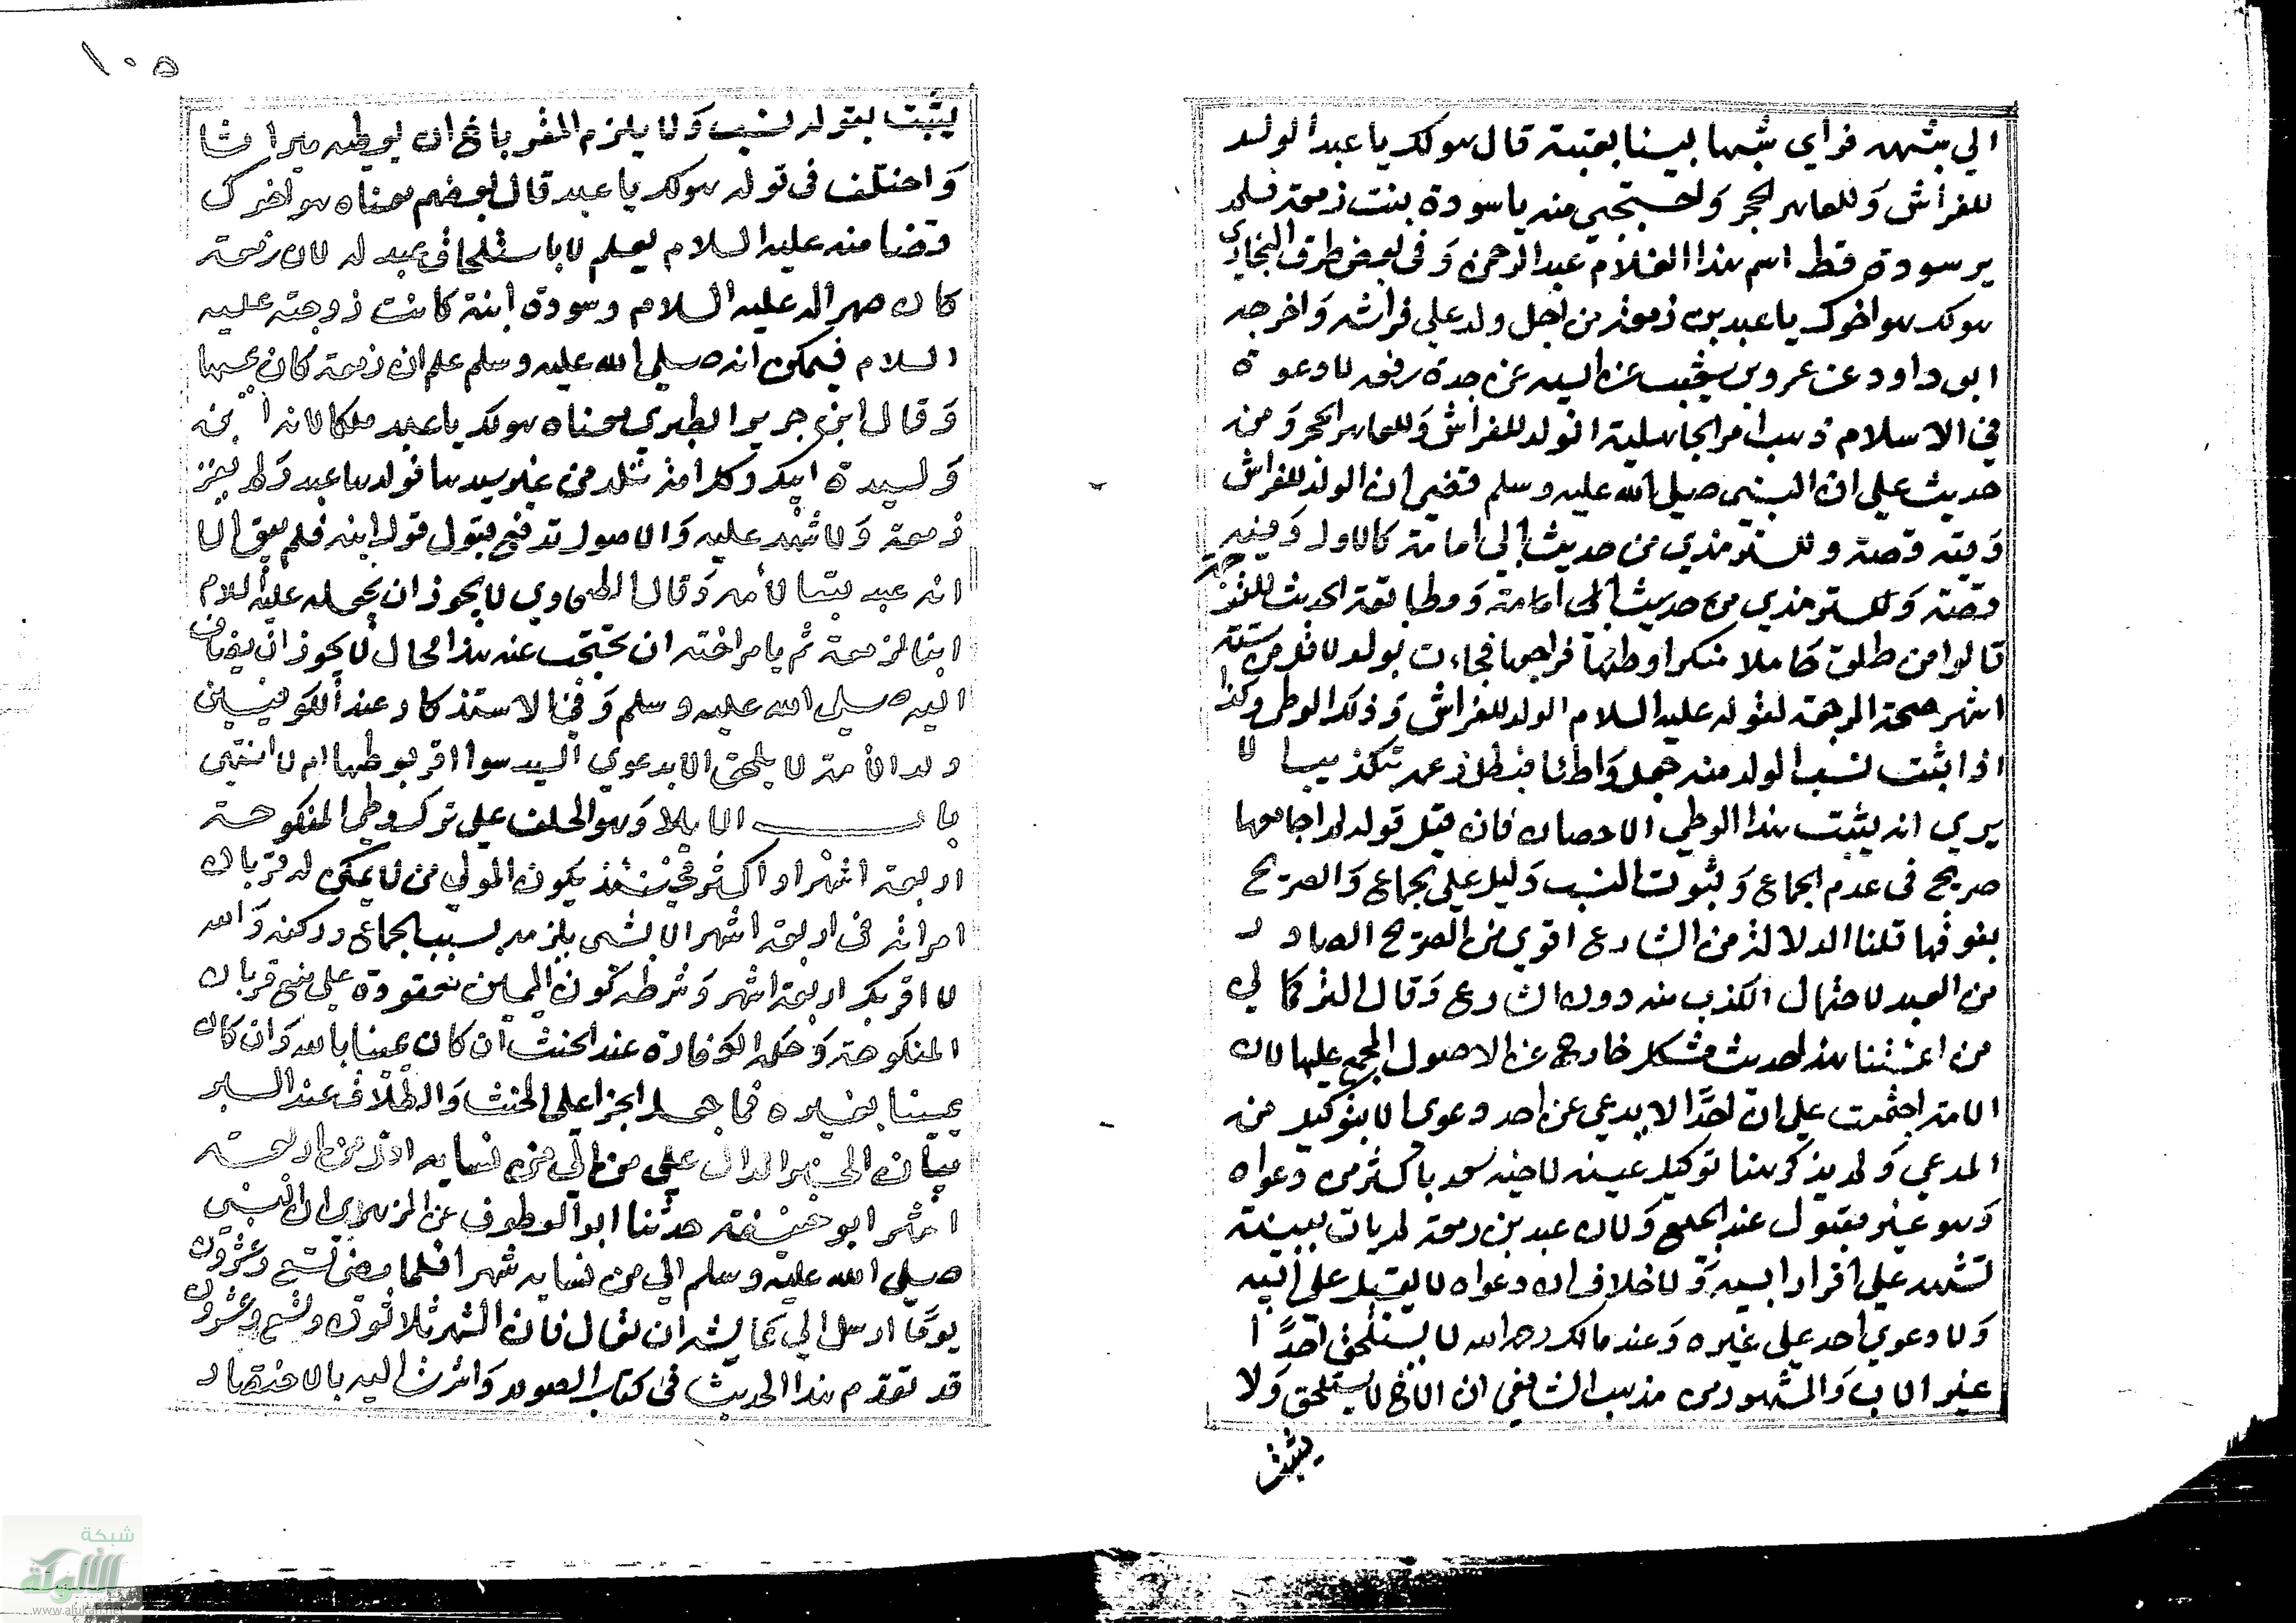 الي شبهه فراي شبها بينا بعتبة قال هو لك يا عبد الولد
للفراش وللعاهر الحجر واحتجبي منه يا سودة بنت زمعة فلم
ير سودة قط اسم هذا الغلام عبد الرحمن وفي بعض طرق البخاري
هو لك هو اخوك يا عبد بن زمعة من اجل ولد علي فراشه واخرجه
ابو داود عن عمرو بن شعيب عن ابيه عن جده رفعه لا دعوة
في الاسلام ذهب امر الجاهلية الولد للفراش وللعاهر الحجر ومن
حديث علي ان النبي صلي الله عليه وسلم قضي ان الولد للفراش
وفيه قصة وللترمذي من حديث ابي امامة كالاول وفيه
قصة وللترمذي من حديث ابي امامة ومطابقة الحديث
قالوا من طلق حاملا منكرا وطئها فراجعها فجاءت بولد لاقل من ستة
اشهر صحة الرجعة لقوله عليه السلام الولد للفراش وذلك الوطي وكذا
اذا ثبت نسب الولد منه جعل واطئا فبطل زعمه تكذيبا لا
يري انه يثبت بهذا الوطي الاحصان فان قيل قوله لم اجامعها
صريح في عدم الجماع وثبوت النسب دليل علي الجماع والصريح
يفوقها قلنا الدلالة من الشارع اقوي من الصريح الصادر
من العبد لاحتمال الكذب منه دون الشارع وقال
من ائمتنا هذا الحديث مشكل خارج عن الاصول المجمع عليها لان
الامة اجتمعت علي ان احدا لا يدعي عن احد دعوي الا بتوكيل من
المدعي ولم يذكر هنا توكيل عتبة لاخيه سعد باكثر من دعواه
وهو غير مقبول عند الجميع ولان عبد بن زمعة لم يات ببينة
تشهد علي اقرار ابيه ولا خلاف ان دعواه لا يقبل علي ابيه
ولا دعوي احد علي غيره وعند مالك رحمه الله لا يستلحق احدا
غير الاب والمشهور من مذهب الشافعي ان الاخ لا يستلحق ولا
يثبت
١٠٥
يثبت بقوله نسب ولا يلزم المقر باخ ان يعطيه ميراثا
واختلف في قوله هو لك يا عبد قال بعضهم معناه هو اخوك
قضا منه عليه السلام بعلم لا باستلحاق عبد له لان زمعة
كان صهرا له عليه السلام وسودة ابنة كانت زوجته عليه
السلام فيمكن انه صلي الله عليه وسلم علم ان زمعة كان يمسها
وقال ابن جرير الطبري معناه هو لك يا عبد ملكا لانه ابن
وليدة ابيك وكل امة تلد من غير سيدها فولدها عبد ولم يقر
زمعة ولا شهد عليه والاصول تدفع قبول قول ابنه فلم يبق الا
انه عبد تبعا لأمه وقال الطحاوي لا يجوز ان يجعله عليه السلام
ابنا لزمعة ثم يامر اخته ان تحتجب عنه هذا محال لا يجوز ان يضاف
اليه صلي الله عليه وسلم وفي الاستذكار عند الكوفيين
ولد الأمة لا يلحق الا بدعوي السيد سوا اقر بوطئها ام لا انتهي
باب الايلا وهو الحلف علي ترك وطي المنكوحة
اربعة اشهر او اكثر فحينئذ يكون المولي من لا يمكن له قربان
امراته في اربعة اشهر الا بشي يلزمه بسبب الجماع وركنه والله
لا اقربك اربعة اشهر وشرطه كون اليمين معقودة علي منع قربان
المنكوحة وحكمه الكفارة عند الحنث ان كان يمينا بالله وان كان
يمينا بغيره فما جعل الجزا علي الحنث والطلاق عند البر
بيان الخبر الدال علي من الي من نسايه اقل من اربعة
اشهر ابو حنيفة حدثنا ابو العطوف عن الزهري ان النبي
صلي الله عليه وسلم الي من نسايه شهرا فلما مضي تسع وعشرون
يوما ارسل الي عايشة ان تعال فان الشهر ثلاثون وتسع وعشرون
قد تقدم هذا الحديث في كتاب الصوم واشرت اليه بالاختصار
شبكة
الألوكة
www.alukah.net